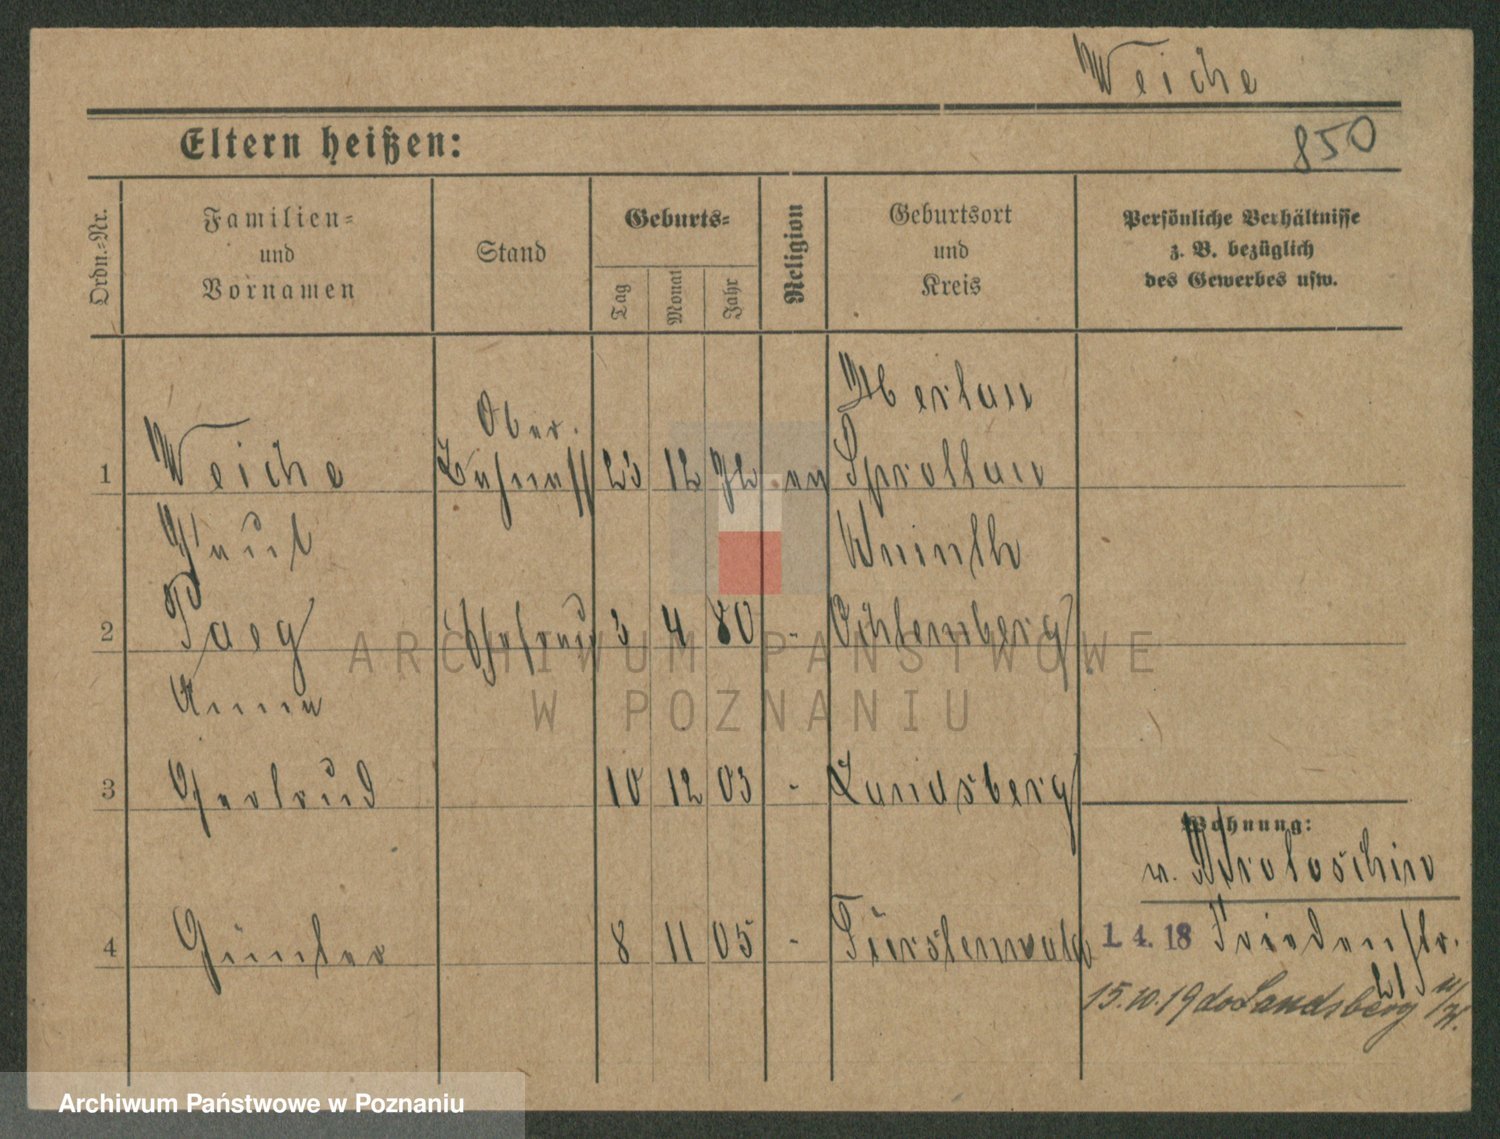 Weiche
Eltern heißen:
850
Ordn.-Nr.
Familien-
und
Vornamen
Stand
Geburts-
Tag
Monat
Jahr
Religion
Geburtsort
und
Kreis
Persönliche Verhältnisse
z. B. bezüglich
des Gewerbes usw.
Ober
1 Weiche 23 12 72 ev Sprottau
Paul
2 Paeg Ehefrau 3 4 80 -
Anna
3 Gertrud 10 12 03 - Landsberg
Wohnung:
n. Krotoschin
4 Günter 8 11 05 - Fürstenwald
1. 4. 18 Friedenstr.
21
15.10.19 do Landsberg a/W.
ARCHIWUM PAŃSTWOWE
W POZNANIU
Archiwum Państwowe w Poznaniu